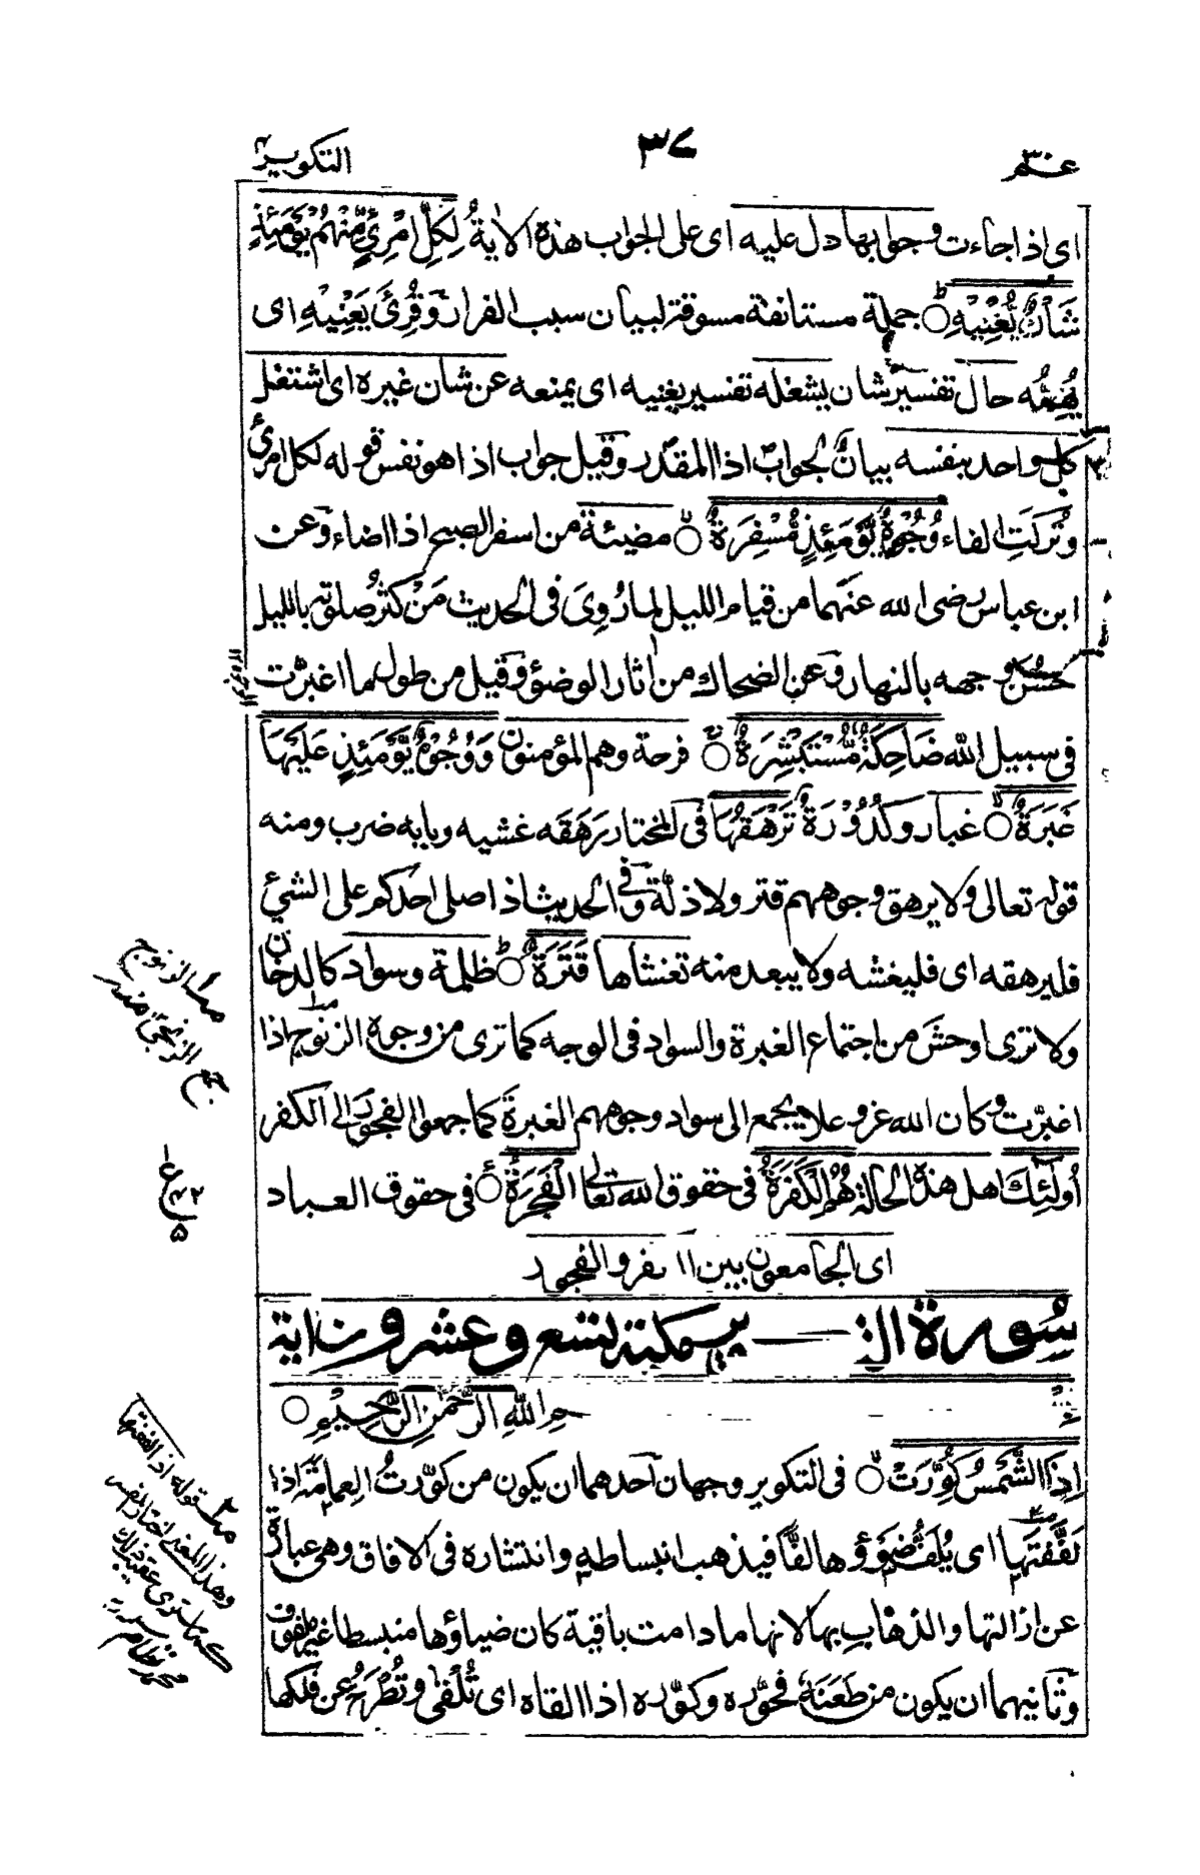 عـم
٣٧
التكوير
اى اذا جاءت وجوابها دل عليه اى على الجواب هذه الاية لِكُلِّ امْرِئٍ مِّنْهُمْ يَوْمَئِذٍ
شَأْنٌ يُّغْنِيْهِ ○ جملة مستانفة مسوقة لبيان سبب الفرار وَقُرِئَ يَعْنِيْهِ اى
يُهِمُّه حال تفسير شان يشغله تفسير يغنيه اى يمنعه عن شان غيره اى اشتغل
كل واحد بنفسه بيانٌ لجواب اذا المقدّر وقيل جواب اذا هو نفس قوله لكل امرئ
وتُرِكَتِ الفاء وُجُوْهٌ يَّوْمَئِذٍ مُّسْفِرَةٌ ○ مضيئة من اسفر الصبح اذا اضاء وعن
ابن عباس رضى الله عنهما من قيام الليل لما رُوِىَ فى الحديث مَنْ كثُر صلوته بالليل
حسُن وجهه بالنهار وعن الضحاك من اثار الوضوء وقيل من طول ما اغبرّت
فى سبيل الله ضَاحِكَةٌ مُّسْتَبْشِرَةٌ ○ فرحة وهم المؤمنون وَوُجُوْهٌ يَّوْمَئِذٍ عَلَيْهَا
غَبَرَةٌ ○ غبار وكُدُوْرَةٌ تَرْهَقُهَا فى المختار رَهِقَه غشيه وبابه ضرب ومنه
قوله تعالى ولا يرهق وجوههم قتر ولا ذلة وفى الحديث اذا صلى احدكم على الشئ
فليرهقه اى فليغشه ولا يبعد منه تغشاها قَتَرَةٌ ○ ظلمة وسواد كالدخان
ولا ترى اوحش من اجتماع الغبرة والسواد فى الوجه كما ترى من وجوه الزنوج اذا
اغبرّت وكان الله عز وعلا يجمع الى سواد وجوههم الغبرة كما جمعوا الفجور الى الكفر
اُولٰئِكَ اهل هذه الحالة هُمُ الْكَفَرَةُ فى حقوق الله تعالى الْفَجَرَةُ ○ فى حقوق العباد
اى الجامعون بين الـفر والفجور
سورة الـتـــــير مكية تسع وعشرون اية
ـمِ اللهِ الرَّحْمٰنِ الرَّحِيْمِ ○
اِذَا الشَّمْسُ كُوِّرَتْ ○ فى التكوير وجهان احدهما ان يكون من كوّرتُ العمامة اذا
لَفَفْتَهَا اى يُلَفّ ضَوْؤُها لفًّا فيذهب انبساطه وانتشاره فى الافاق وهى عبارة
عن ازالتها والذهاب بها لانها ما دامت باقية كان ضياؤها منبسطا غير ملفوف
وثانيهما ان يكون من طَعَنَهُ فجوّره وكوّره اذا القاه اى تُلْقى وتُطْرَحُ عن فلكها
الزنوج
جمع الزنجى
ع
٥
قوله اذا لففتها